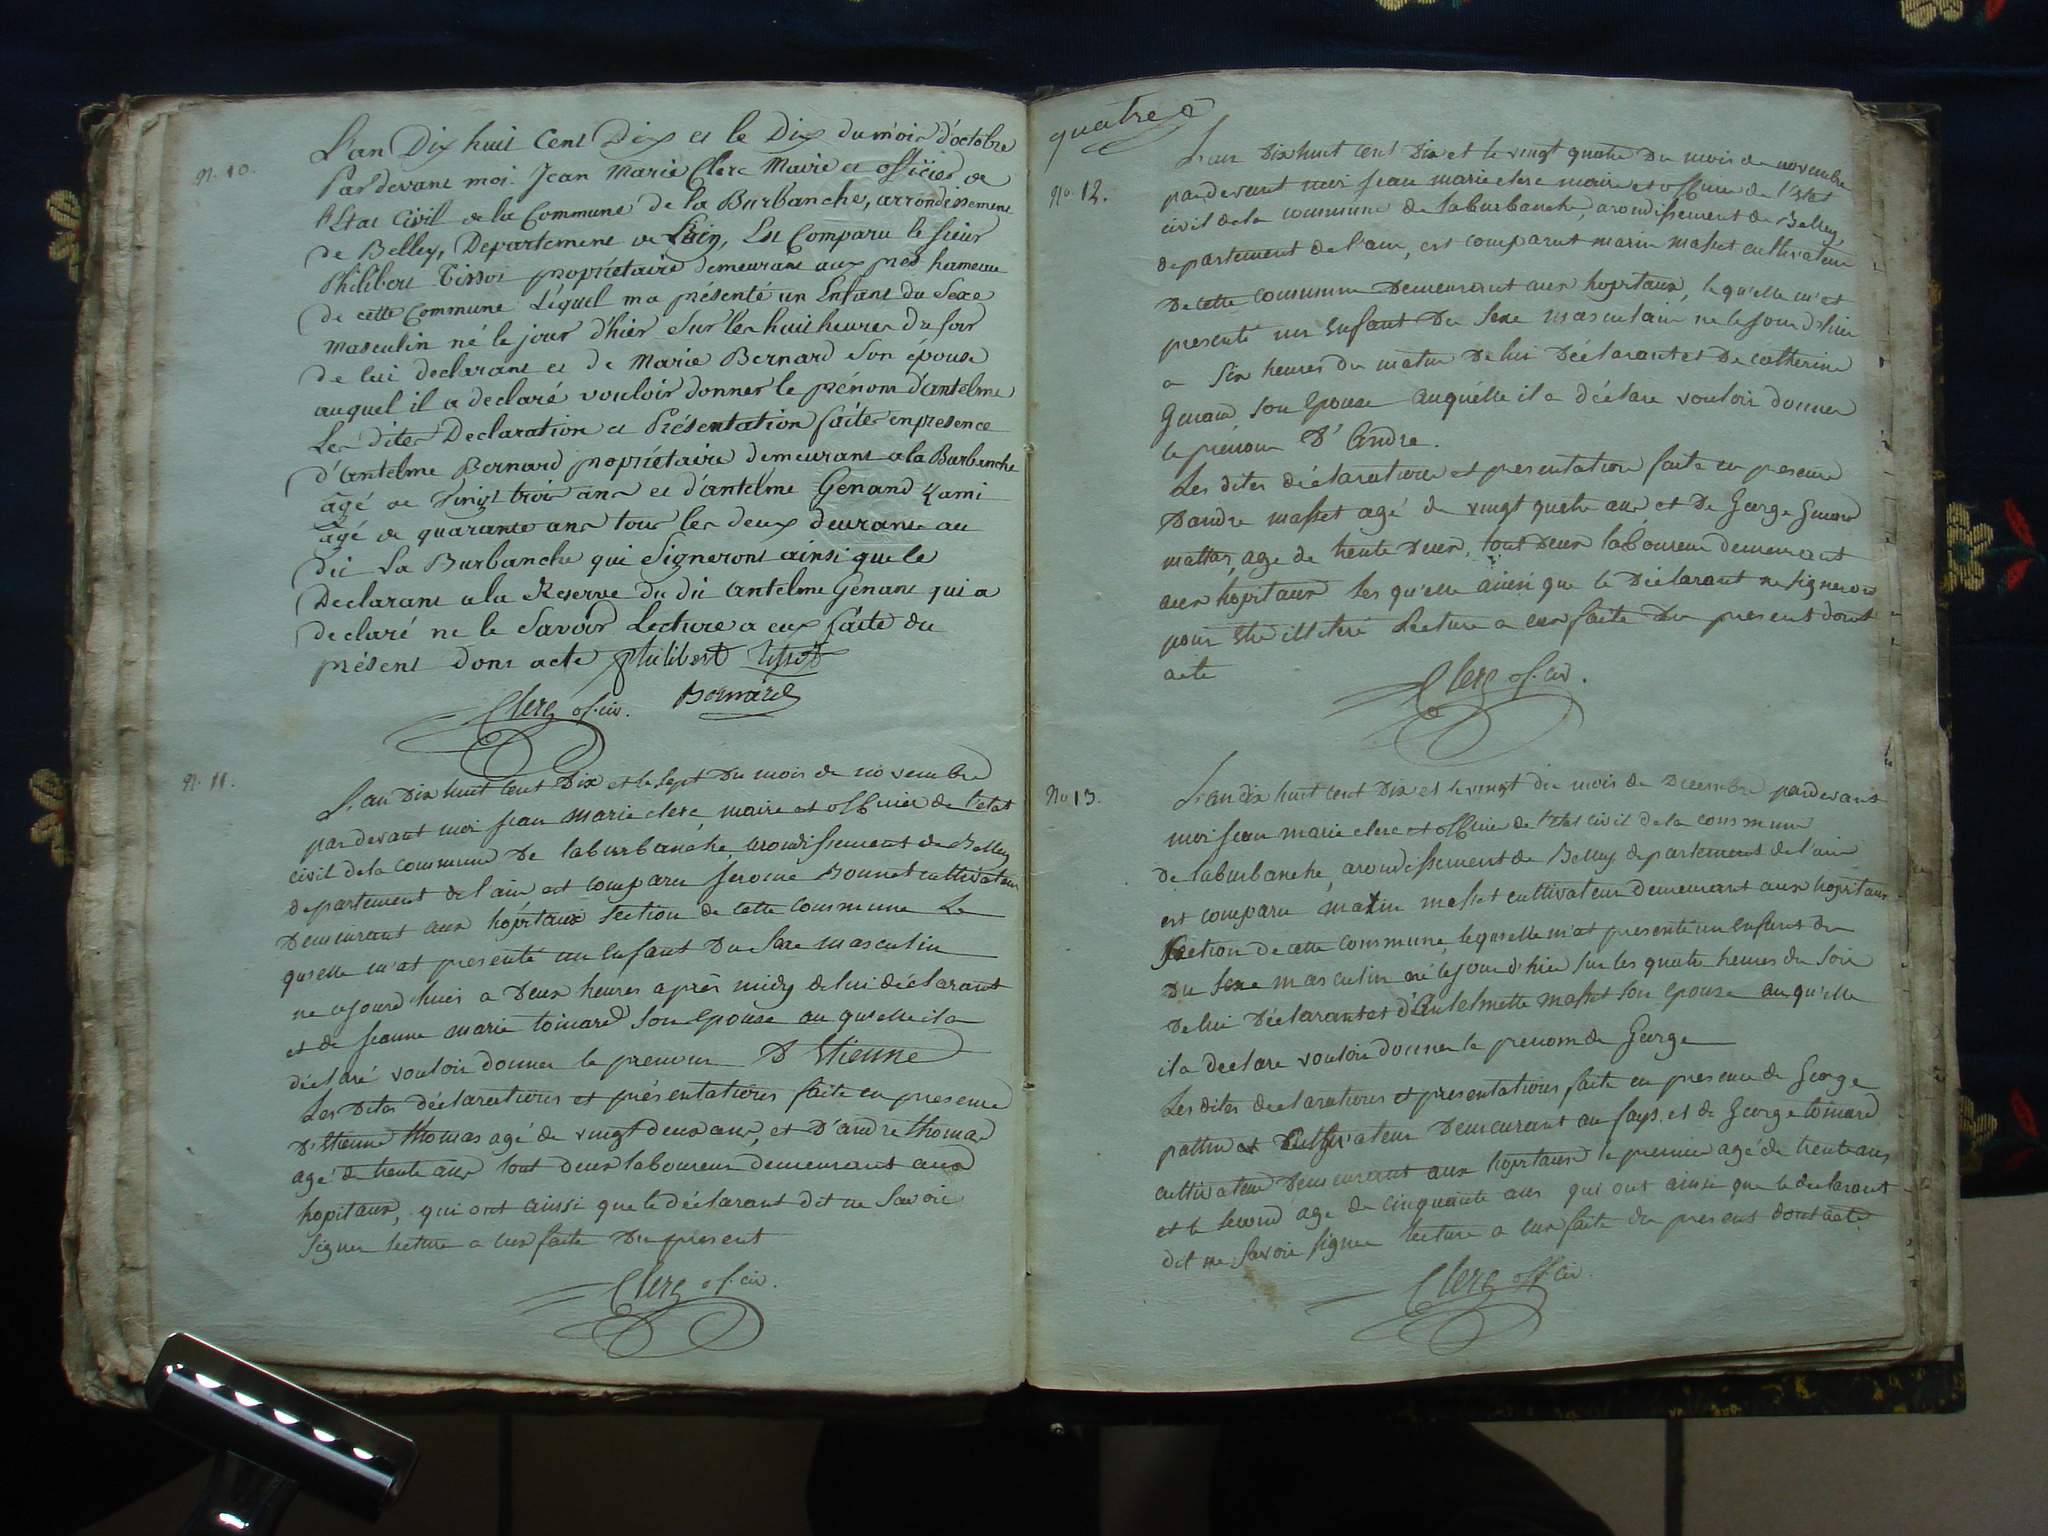 N. 10.
L'an Dix huit Cent Dix et le Dix du mois d'octobre
Pardevant moi Jean Marie Clerc Maire et officier de
l'Etat Civil de la Commune de la Burbanche, arrondissement
de Belley, Departement de L'ain, Est Comparu le sieur
Philibert Tissot propriétaire demeurant aux pres hameau
de cette Commune Lequel ma présenté un Enfant du Sexe
masculin né le jour d'hier Sur les huit heures du soir
de lui declarant et de Marie Bernard Son épouse
auquel il a declaré vouloir donner le prénom d'antelme
Les dites Declaration et Présentation faites en presence
d'antelme Bernard propriétaire demeurant a la Burbanche
agé de Vingt trois ans et d'antelme Genand
agé de quarante ans tous les deux deurant au
dit La Burbanche qui Signeront ainsi que le
Declarant a la Reserve du dit antelme Genant qui a
declaré ne le Savoir Lecture a eux faite du
présent dont acte Philibert Tissot
Clerc of. civ. Bernard
N. 11.
L'an Dix huit Cent Dix et le Sept Du mois de novembre
pardevant moi jean marie clerc, maire et officier de l'etat
civil de la commune De laburbanche, arondissement de Belley
departement de l'ain est comparu jerome Bonnet cultivateur
Demeurant aux hôpitaux section de cette commune Le
quelle m'at presenté un enfant Du Sexe masculin
ne ajourd'huis a Deux heures après midy de lui déclarant
et de jeanne marie toinard Son epouse au quelle il a
déclaré vouloir donner le prenom D'Etienne
Les Dites déclarations et présentations faite en presence
D'Etienne thomas agé de vingt deux ans, et D'andre thomas
agé de trente ans tout deux laboureur demeurant aux
hopitaux, qui ont ainsi que le déclarant dit ne Savoir
Signer lecture a eux faite Du present
Clerc of. civ.
quatre
No. 12.
L'an Dix huit Cent Dix et le vingt quatre Du mois de novembre
pardevant moi jean marie clerc maire et officier de l'Etat
civil de la commune de laburbanche, arondissement de Belley,
departement de l'ain, est comparut marin masset cultivateur
De cette commune Demeurant aux hopitaux, le qu'elle m'at
presenté un Enfant Du Sexe masculain ne le jour d'hier
a Six heures du matin De lui Déclarant et De catherine
Genand Son Epouse auquélle il a déclare vouloir donner
le prénom D'Andre.
Les dites déclarations et presentation faite en presence
Dandre masset agé de vingt quatre ans et De George Genand
mattas, age de trente Deux, tout Deux laboureur demeurant
aux hopitaux les qu'elle ainsi que le Déclarant ne signeron
pour Etre illiteré Lecture a eux faite Du present dont
acte
Clerc of. civ.
No 13.
L'an dix huit cent Dix et le vingt du mois de Decembre pardevant
moi jean marie clerc et officier de l'etat civil de la commune
De laburbanche, arondissement de Belley departement de l'ain
est comparu matin masset cultivateur demeurant aux hopitaux
Section de cette commune, le quelle m'at presenté un Enfant du
Du Sexe masculin né le jour d'hier Sur les quatre heures du Soir
De lui Déclarant et d'Antelmette masset Son epouse au qu'elle
il a declare vouloir donner le prenom de George
Les dites declarations et presentations, faite en presence de George
pattin et Cultivateur Demeurant au fays et de George toinard
cultivateur Demeurant aux hopitaux le premier agé de trente ans
et le Second age de cinquante ans qui ont ainsi que le declarant
dit ne Savoir signer lecture a eux faite du present dont acte
Clerc off. civ.